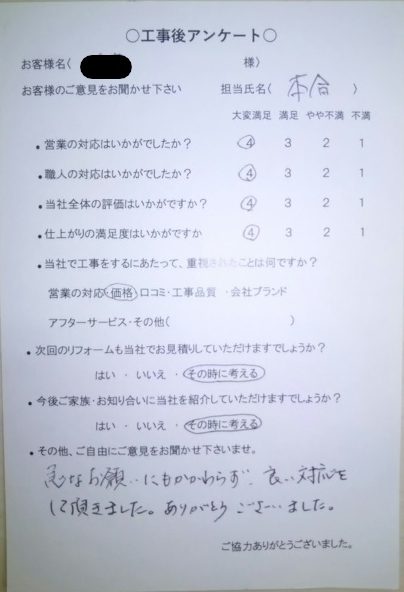 ○工事後アンケート○
お客様名( 様)
お客様のご意見をお聞かせ下さい 担当氏名( 本合 )
大変満足 満足 やや不満 不満
・営業の対応はいかがでしたか？ 4 3 2 1
・職人の対応はいかがでしたか？ 4 3 2 1
・当社全体の評価はいかがですか？ 4 3 2 1
・仕上がりの満足度はいかがですか 4 3 2 1
・当社で工事をするにあたって、重視されたことは何ですか？
営業の対応・価格・口コミ・工事品質 ・会社ブランド
アフターサービス・その他( )
・次回のリフォームも当社でお見積りしていただけますでしょうか？
はい ・ いいえ ・ その時に考える
・今後ご家族・お知り合いに当社を紹介していただけますでしょうか？
はい ・ いいえ ・ その時に考える
・その他、ご自由にご意見をお聞かせ下さいませ。
急なお願いにもかかわらず、良い対応を
して頂きました。ありがとうございました。
ご協力ありがとうございました。